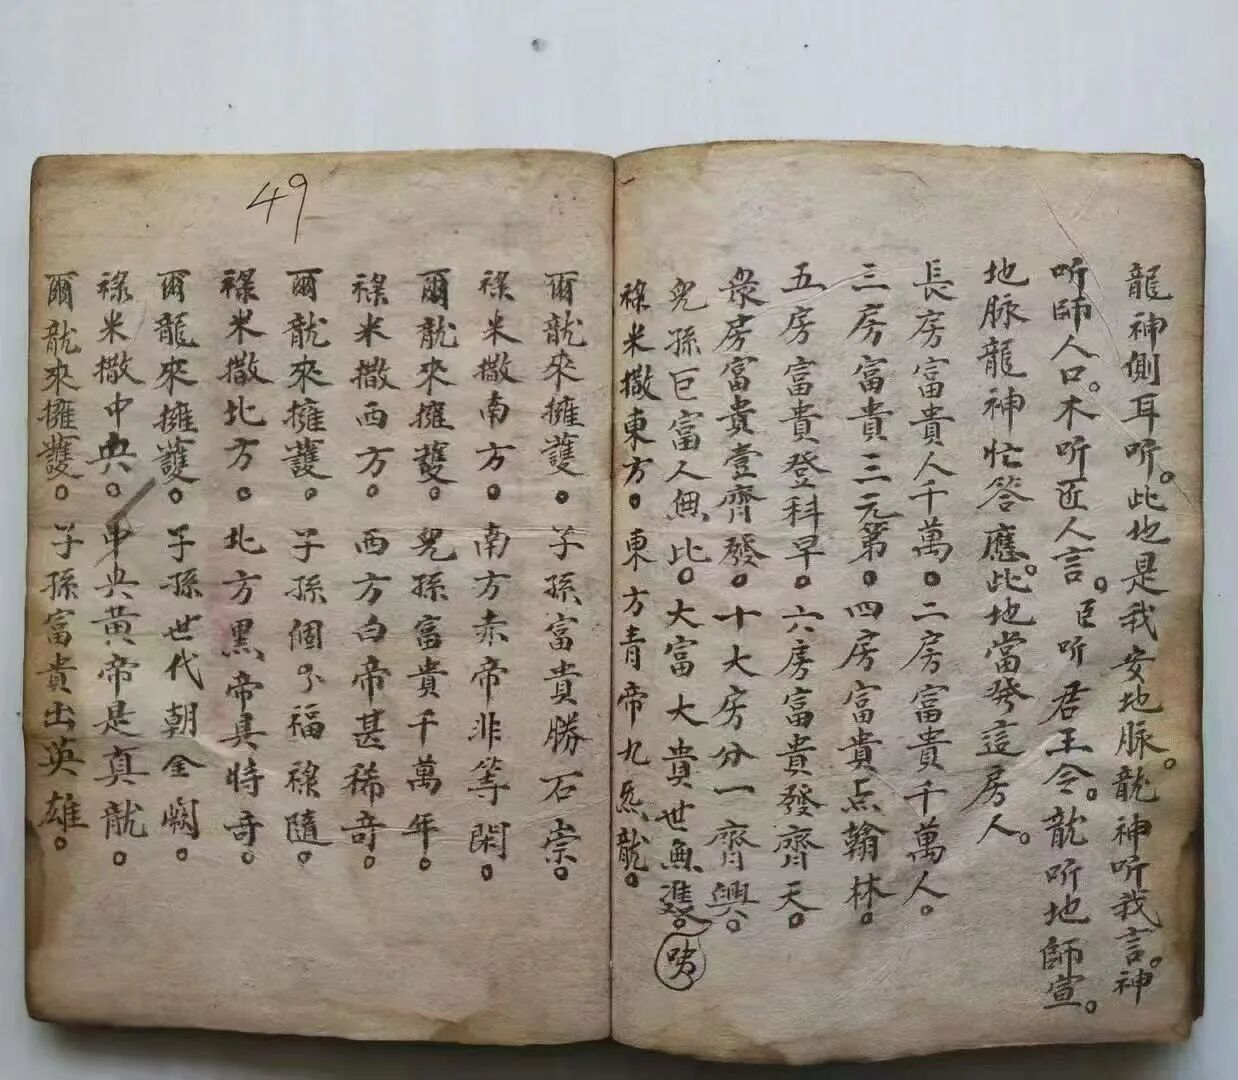 龍神側耳听。此地是我安地脉。龍神听我言。神
听師人口。木听匠人言。臣听君王令。龍听地師宣。
地脉龍神忙答應。此地當發這房人。
長房富貴人千萬。二房富貴千萬人。
三房富貴三元第。四房富貴点翰林。
五房富貴登科早。六房富貴發齊天。
衆房富貴壹齊發。十大房分一齊興。
兒孫巨富人無比。大富大貴世無雙。
祿米撒東方。東方青帝九炁龍。
49
爾龍來擁護。子孫富貴勝石崇。
祿米撒南方。南方赤帝非等閑。
爾龍來擁護。兒孫富貴千萬年。
祿米撒西方。西方白帝甚稀奇。
爾龍來擁護。子孫個个福祿隨。
祿米撒北方。北方黑帝具特奇。
爾龍來擁護。子孫世代朝金闕。
祿米撒中央。中央黃帝是真龍。
爾龍來擁護。子孫富貴出英雄。